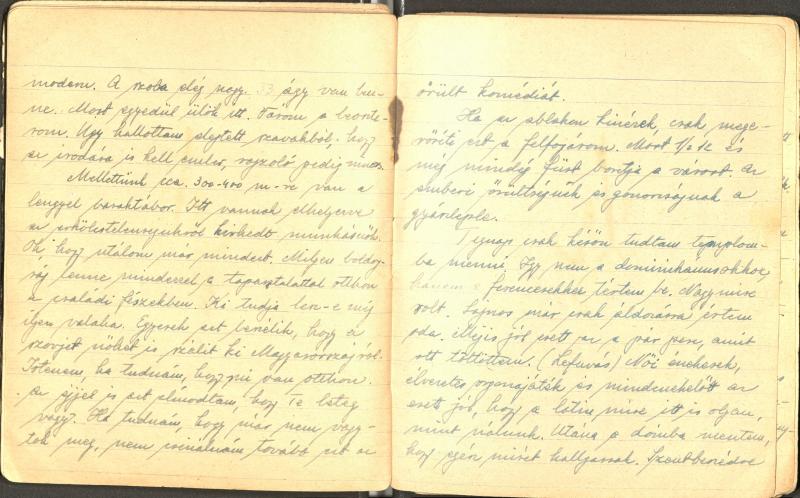 modern. A szoba elég nagy. 33 ágy van ben-
ne. Most egyedül ülök itt. Várom a beoszto-
rom. Úgy hallottam elejtett szavakból, hogy
az irodára is kell ember, rajzoló pedig nincs.
Mellettünk cca. 300-400 m-re van a
lengyel baraktábor. Itt vannak elhelyezve
az erkölcstelenségükről hírhedt munkásnők.
Óh hogy utálom már mindezt. Milyen boldog-
ság lenne mindezzel a tapasztalattal otthon
a családi fészekben. Ki tudja lesz-e még
ilyen valaha. Egyesek azt beszélik, hogy a
szovjet nőket is szállít ki Magyarországról.
Istenem, ha tudnám, hogy mi van otthon.
Az éjjel is azt álmodtam, hogy Te beteg
vagy. Ha tudnám, hogy már nem vagy-
tok meg, nem csinálnám tovább ezt az
őrült komédiát.
Ha az ablakon kinézek, csak mege-
rősíti ezt a felfogásom. Most 1/2 12 és
még mindég füst borítja a várost. Az
emberi őrültségnek és gonoszságnak a
gyászleple.
Tegnap csak későn tudtam templom-
ba menni. Így nem a dominikánusokhoz,
hanem a ferencesekhez tértem be. Nagymise
volt. Sajnos már csak áldozásra értem
oda. Mégis jól esett az a pár perc, amit
ott töltöttem. (Lefúvás) Női énekesek,
élvezetes orgonajáték és mindenekelőtt az
esett jól, hogy a latin mise itt is olyan,
mint nálunk. Utána a dómba mentem,
hogy egész misét hallgassak. Szentbeszédre